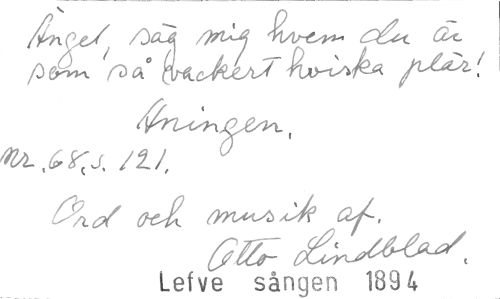 Ängel, säg mig hvem du är
som så vackert hviska plär!
Aningen.
nr. 68, s. 121.
Ord och musik af.
Otto Lindblad.
Lefve sången 1894